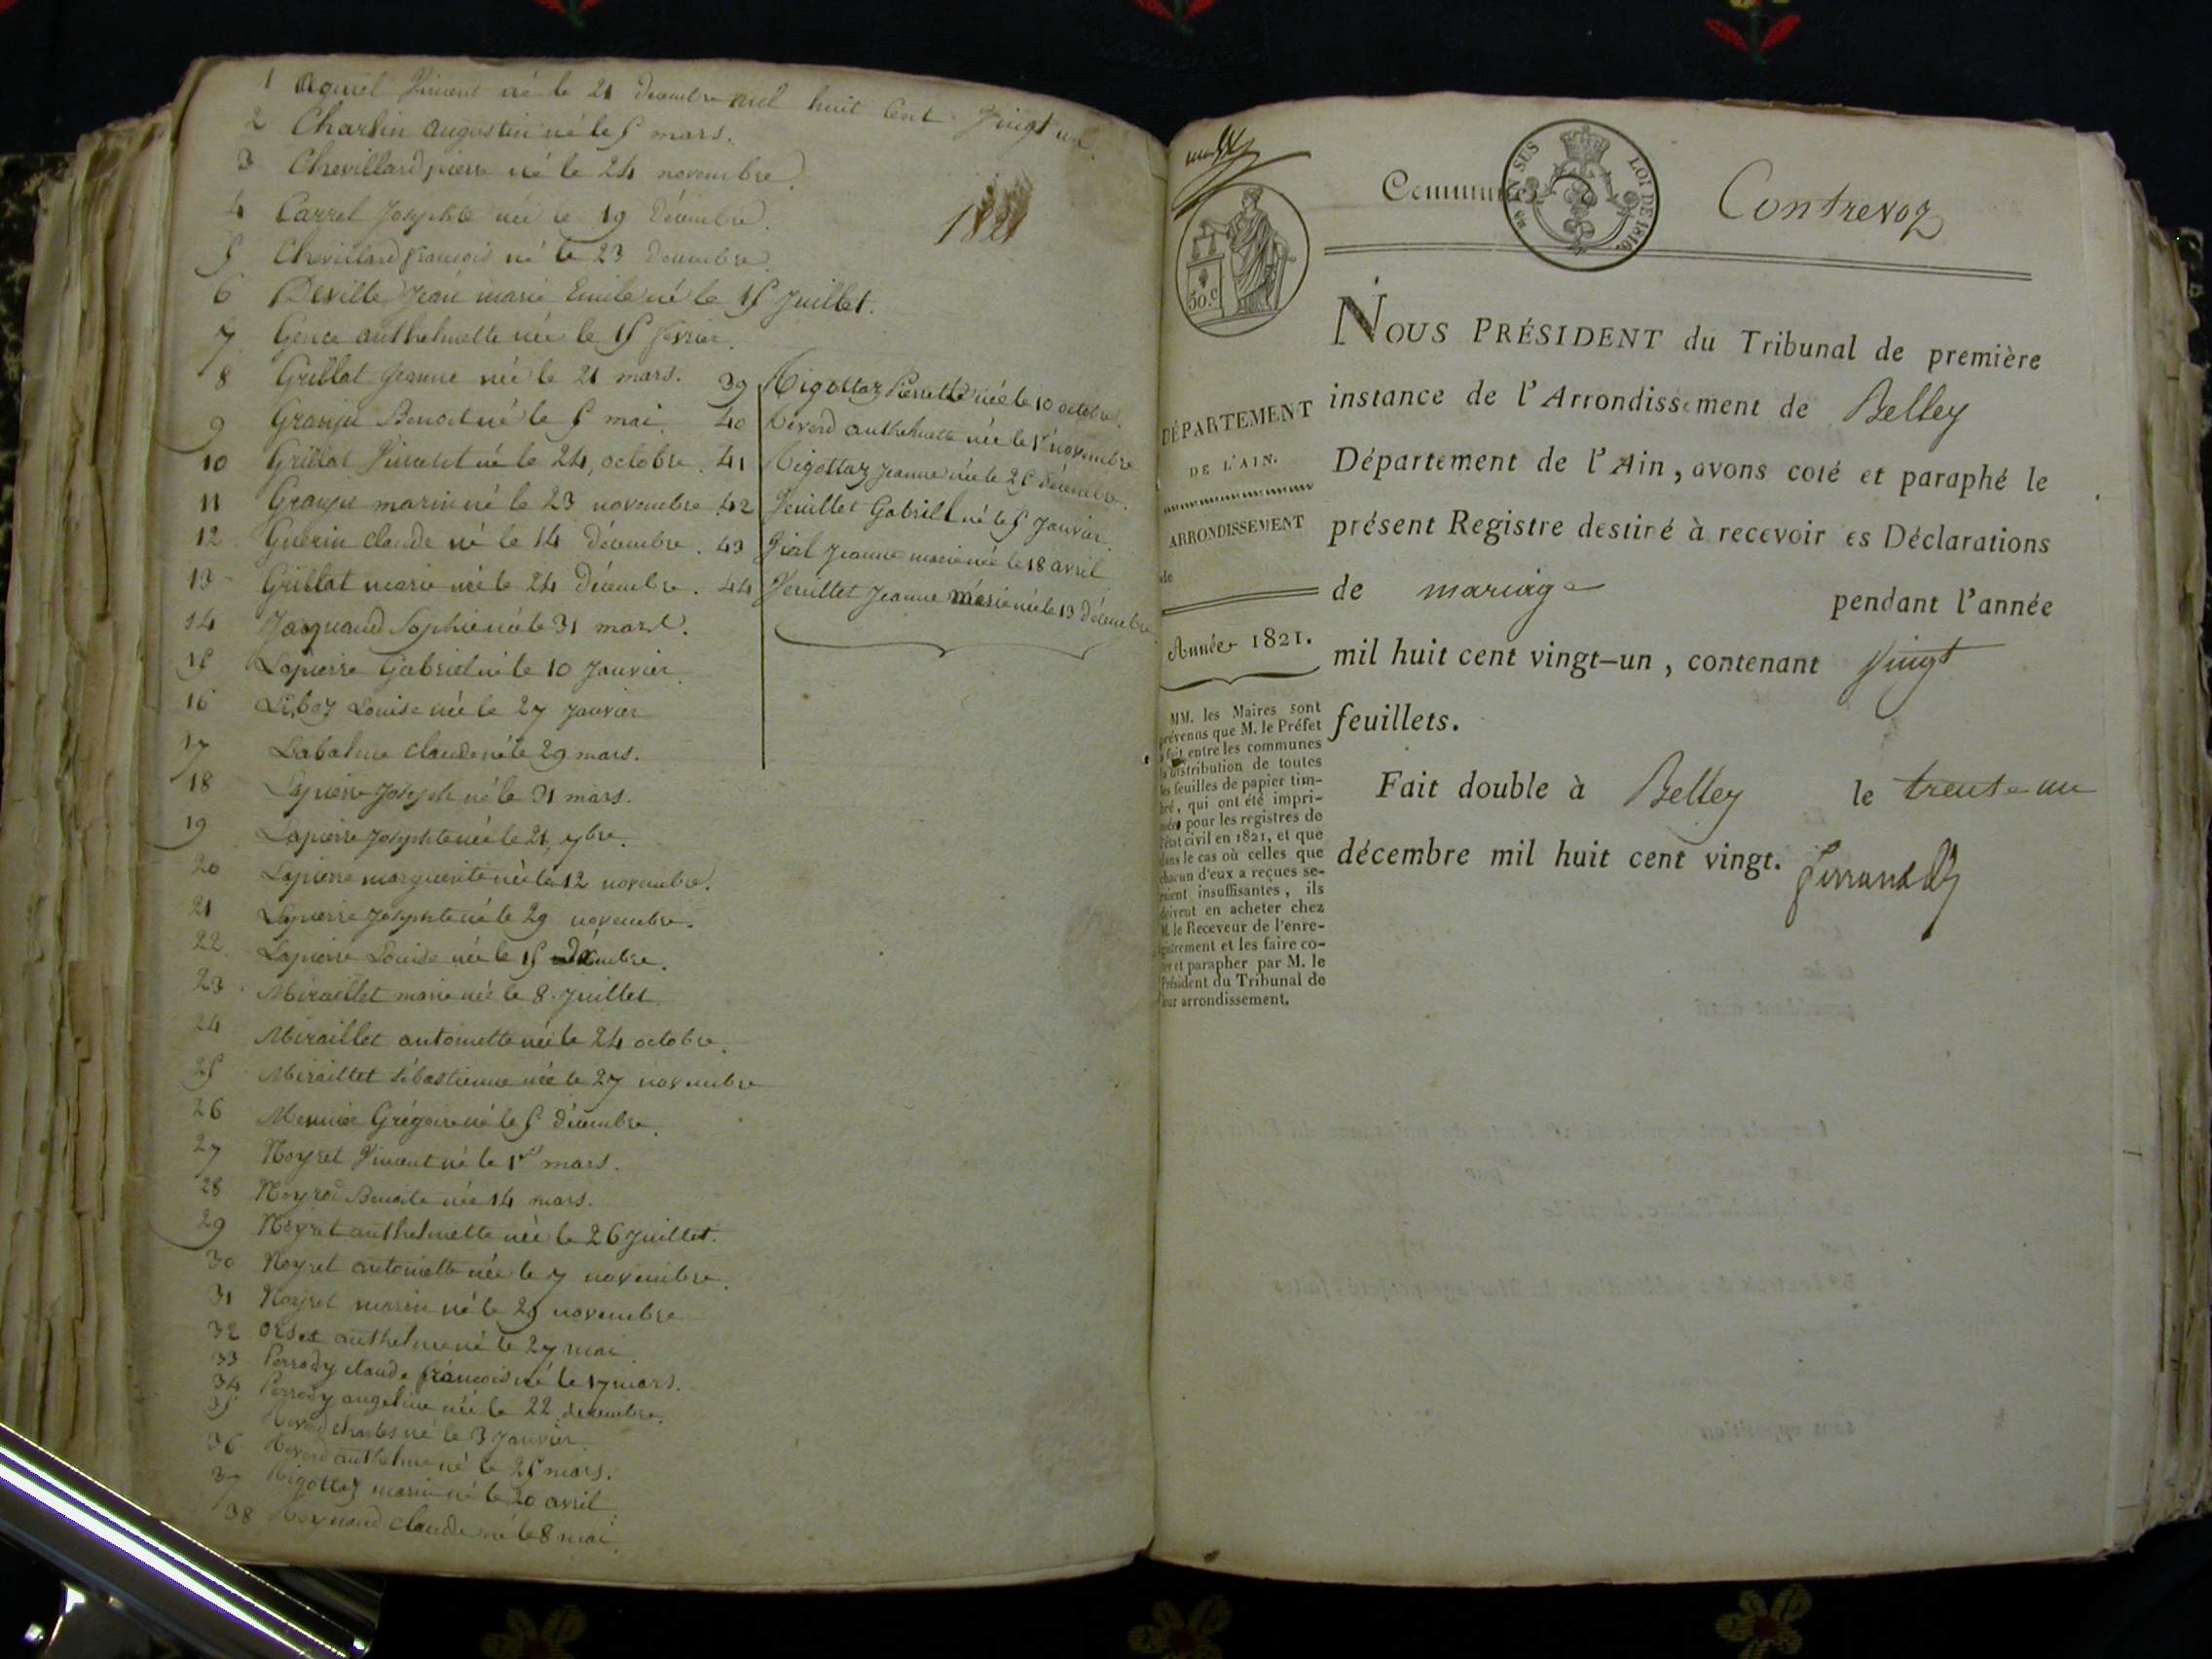 1 Aguiel Vincent né le 21 Decembre mil huit Cent Vingt un.
2 Charlin augustin né le 5 mars.
3 Chevillard pierre né le 24 novembre.
4 Carrel Josephte née le 19 Décembre.
5 Chevillard françois né le 23 Decembre.
6 Deville Jean marie Emile né le 15 Juillet.
7 Gence anthelmette née le 15 fevrier.
8 Grillat Jeanne née le 21 mars.
9 Granju Benoit né le 5 mai.
10 Grillat Vincent né le 24 octobre.
11 Granju marin né le 23 novembre
12 Guerin claude né le 14 décembre.
13 Grillat marie née le 24 Décembre.
14 Jacquand Sophie née le 31 mars.
15 Lapierre Gabriel né le 10 Janvier
16 Louise née le 27 Janvier
17 Labalme claude né le 29 mars.
18 Lapierre Joseph né le 31 mars.
19 Lapierre Josephte née le 21 9bre.
20 Lapierre marguerite née le 12 novembre.
21 Lapierre Josephte né le 29 novembre.
22 Lapierre Louise née le 15 Décembre.
23 Miraillet marie née le 8 Juillet
24 Miraillet antoinette née le 24 octobre.
25 Miraillet Sébastienne née le 27 novembre
26 Grégoire né le 5 décembre.
27 Neyret Vincent né le 1er mars.
28 Benoite née 14 mars.
29 Neyret anthelmette née le 26 Juillet.
30 Neyret antoinette née le 7 novembre.
31 Neyret marin né le 29 novembre
32 Orset anthelme né le 27 mai
33 Perrody claude françois né le 17 mars.
34 Perrody angeline née le 22 décembre.
35 Reverd charles né le 3 Janvier
36 Reverd anthelme né le 25 mars.
37 Rigottaz marin né le 20 avril.
38 Reynaud claude né le 8 mai.
1821
39 Rigottaz Pierrette née le 10 octobre.
40 Reverd anthelmette née le 1er novembre
41 Rigottaz Jeanne née le 25 décembre.
42 Veuillet Gabriel né le 5 Janvier.
43 Vial Jeanne marie née le 18 avril
44 Veuillet Jeanne marie née le 13 Décembre
Commune Contrevoz
EN SUS LOI DE 1816.
50.c
NOUS PRÉSIDENT du Tribunal de première
instance de l'Arrondissement de Belley
Département de l'Ain, avons coté et paraphé le
présent Registre destiné à recevoir es Déclarations
de mariage pendant l'année
mil huit cent vingt-un, contenant Vingt
feuillets.
Fait double à Belley le trente un
décembre mil huit cent vingt.
DÉPARTEMENT
DE L'AIN.
ARRONDISSEMENT
de
Année 1821.
MM. les Maires sont
prévenus que M. le Préfet
a fait entre les communes
la distribution de toutes
les feuilles de papier tim-
bré, qui ont été impri-
mées pour les registres de
l'état civil en 1821, et que
dans le cas où celles que
chacun d'eux a reçues se-
raient insuffisantes, ils
doivent en acheter chez
M. le Receveur de l'enre-
gistrement et les faire co-
ter et parapher par M. le
Président du Tribunal de
leur arrondissement.